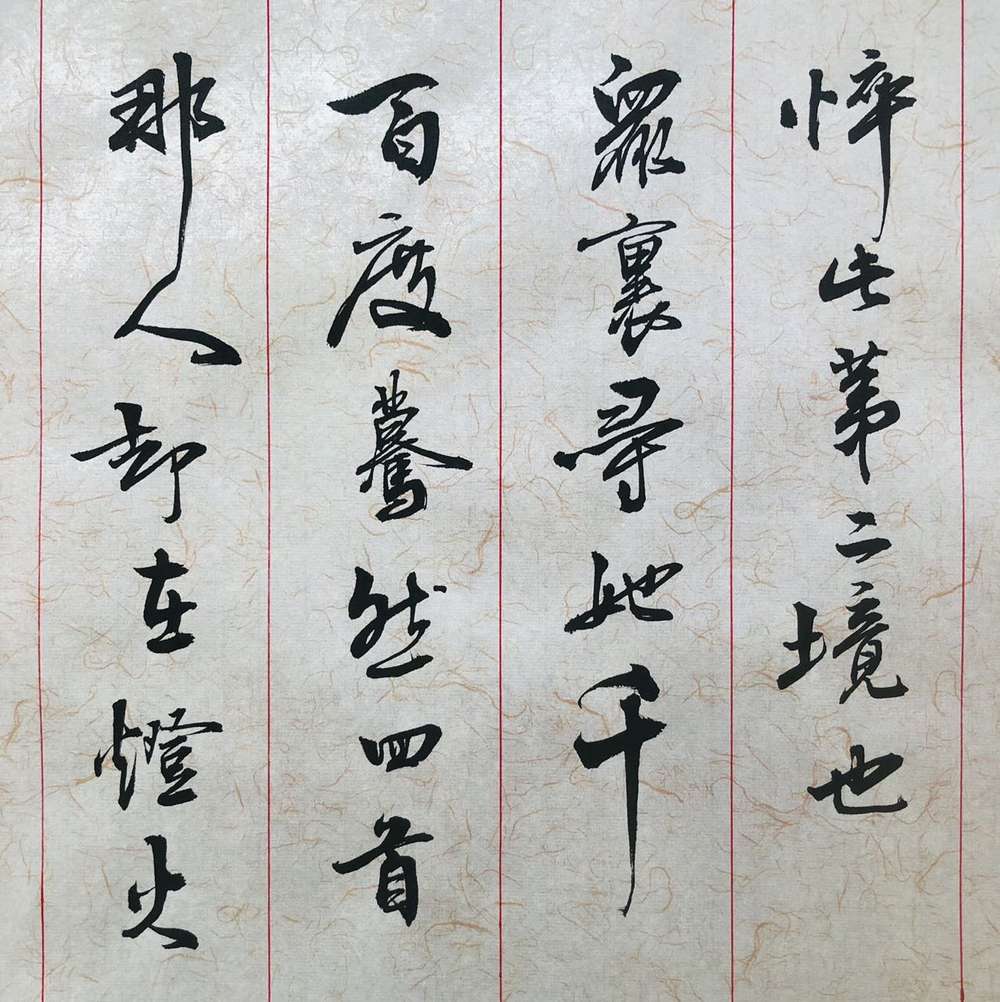 悴此第二境也
眾裏尋她千
百度驀然四首
那人却在燈火